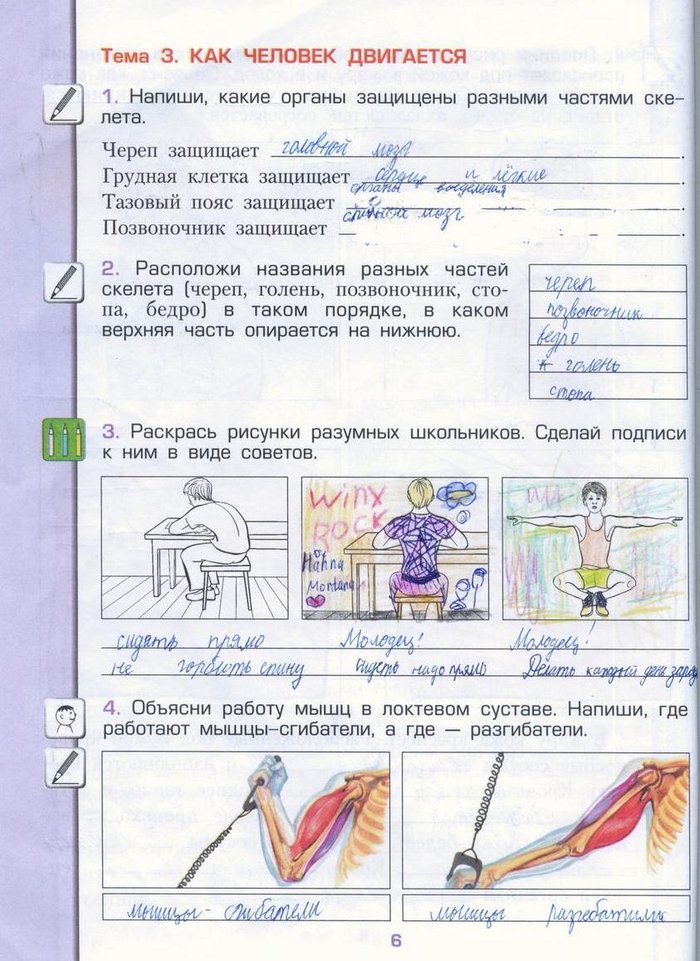 Тема 3. КАК ЧЕЛОВЕК ДВИГАЕТСЯ
1. Напиши, какие органы защищены разными частями ске-
лета.
Череп защищает головной мозг.
Грудная клетка защищает сердце и лёгкие.
Тазовый пояс защищает органы выделения.
Позвоночник защищает спинной мозг.
2. Расположи названия разных частей
скелета (череп, голень, позвоночник, сто-
па, бедро) в таком порядке, в каком
верхняя часть опирается на нижнюю.
череп
позвоночник
бедро
голень
стопа
3. Раскрась рисунки разумных школьников. Сделай подписи
к ним в виде советов.
Winx
ROCK
Hanna
Montana
сидять прямо
не горбють спину
Молодец!
Сидеть надо прямо
Молодец!
Делать каждый день заряд
4. Объясни работу мышц в локтевом суставе. Напиши, где
работают мышцы-сгибатели, а где — разгибатели.
мышцы - сгибатели
мышцы разгебатили
6